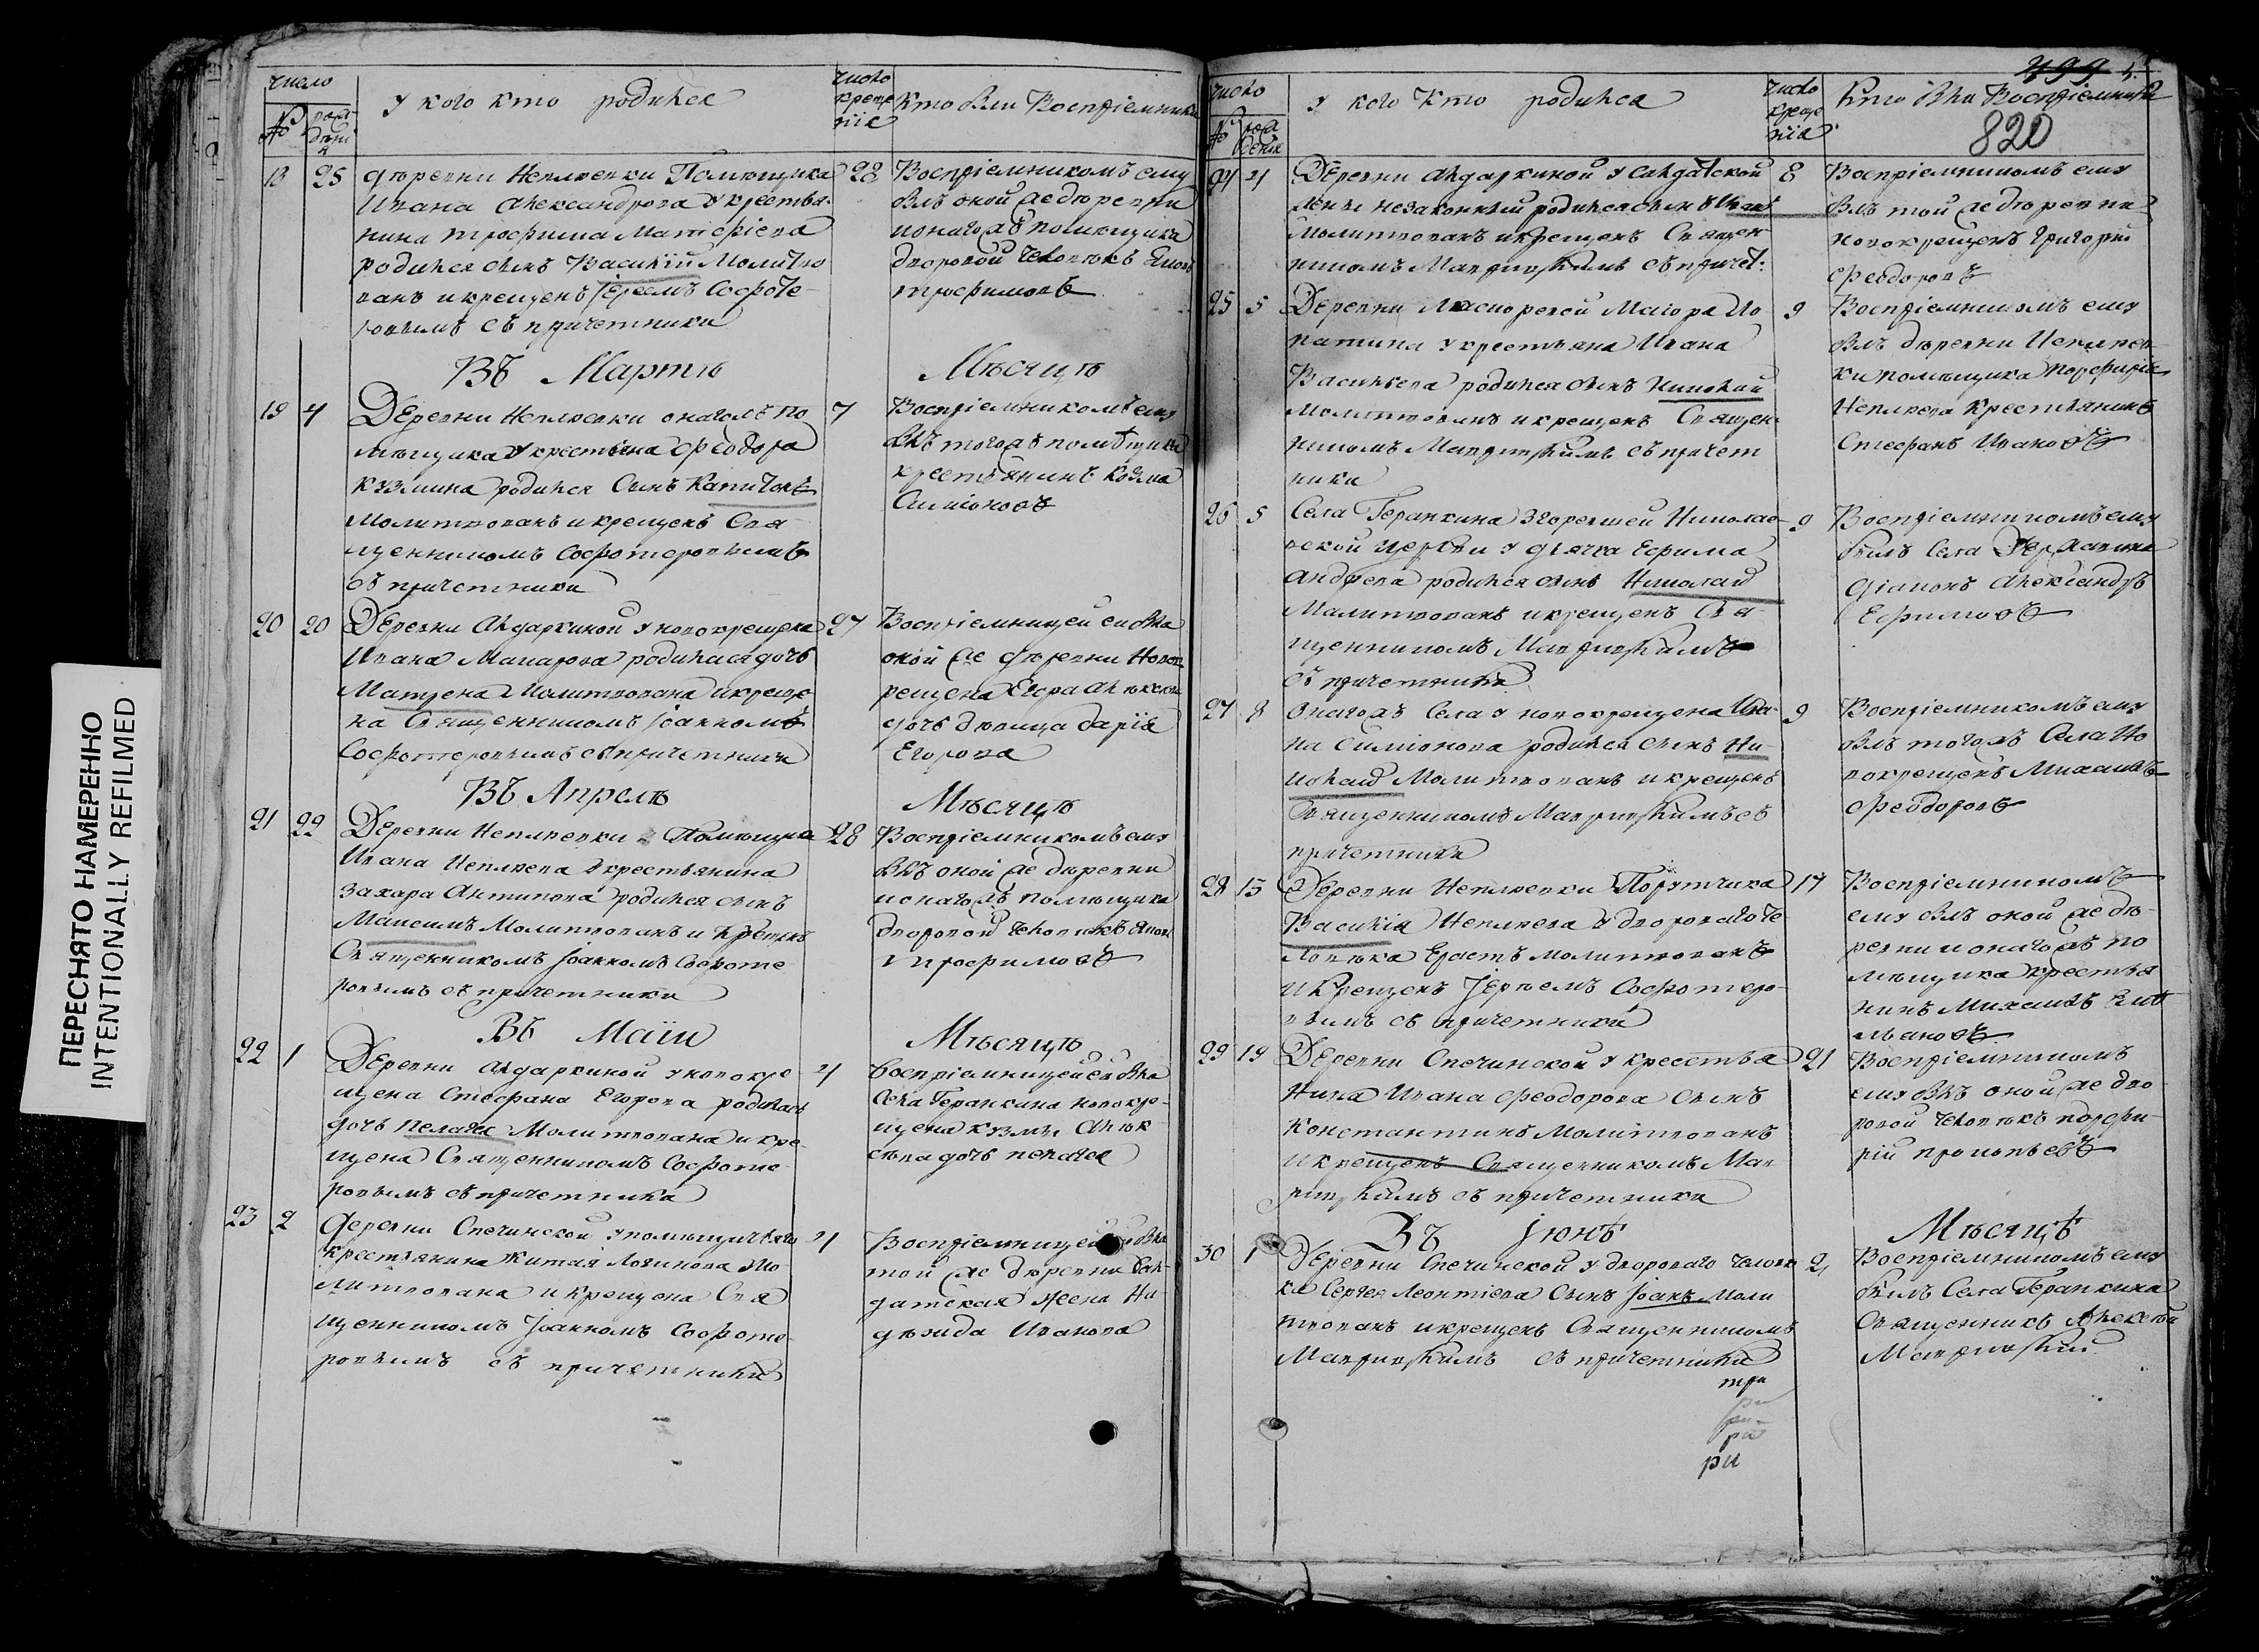 ПЕРЕСНЯТО НАМЕРЕННО
INTENTIONALLY REFILMED
число
№
рожденія
у кого кто родился
число крещенія
Кто были Воспріемники
18
25
деревни Неплюевки Помѣщика
Ивана Александрова у крестья-
нина Трофима Матфіева
родился сынъ Василій Молитво
ванъ и крещенъ Іереемъ Софоте
ровымъ съ причетники
28
Воспріемникомъ ему
былъ оной же деревни
и онагожъ помѣщика
дворовой человѣкъ
Трофимовъ
Въ Мартѣ
Мѣсяцѣ
19
4
Деревни Неплюевки онагожъ по
мѣщика у крестьяна Феодора
Кузмина родился Сынъ Капитонъ
Молитвованъ и крещенъ Свя
щенникомъ Софотеровымъ
съ причетники
7
Воспріемникомъ ему
былъ тогожъ помѣщика
крестьянинъ Козма
Симіоновъ
20
20
Деревни Андаркиной у новокрещена
Ивана Макарова родилася дочь
Матрена Молитвована и креще
на Священникомъ Іоанномъ
Софотеровымъ съ причетники
27
Воспріемницей ей была
оной же деревни Новок
рещена Егора Алѣксеева
дочь дѣвица Дарія
Егорова
Въ Апрелѣ
Мѣсяцѣ
21
22
Деревни Неплюевки Помѣщика
Ивана Неплюева у крестьянина
Захара Антипова родился сынъ
Максимъ Молитвованъ и крещенъ
Священникомъ Іоанномъ Софоте
ровымъ съ причетники
28
Воспріемникомъ ему
былъ оной же деревни
и онагожъ помѣщика
дворовой человѣкъ
Трофимовъ
Въ Маіи
Мѣсяцѣ
22
1
Деревни Андаркиной у новокре
щена Стефана Егорова родилась
дочь Пелагея Молитвована и кре
щена Священникомъ Софоте
ровымъ съ причетники
4
воспріемницей ей была
Села Геранкина новокре
щена Кузмы Алѣк
сѣева дочь Пелагея
23
2
деревни Спечинской у помѣщичьяго
крестьянина Логинова Мо
литвована и крещена Свя
щенникомъ Іоанномъ Софоте
ровымъ съ причетники
4
Воспріемницей ей была
той же деревни Сал
датская жена На
дѣжда Иванова
499
820
число
№
рожденія
у кого кто родился
число крещенія
Кто были Воспріемники
24
4
Деревни Андаркиной у салдатской
жены незаконный родился сынъ Иванъ
Молитвованъ и крещенъ Священ
никомъ Мавринскимъ съ причет:
8
Воспріемникомъ ему
былъ той же деревни
новокрещенъ Григорій
Феодоровъ
25
5
Деревни Маіора Ло
патина у крестьяна Ивана
Васильева родился сынъ Николай
Молитвованъ и крещенъ Священ
никомъ Мавринскимъ съ причет
ники
9
Воспріемникомъ ему
былъ деревни Неплюев
ки помѣщика Порфирія
Неплюева Крестьянинъ
Стефанъ Ивановъ
26
5
Села Геранкина згоревшей Николае
вской церкви у дьячка Ефима
Андреева родился сынъ Николай
Малитвованъ и крещенъ Свя
щенникомъ Мавринскимъ
съ причетники
9
Воспріемникомъ ему
былъ Села
діаконъ Александръ
Ефимовъ
27
8
Онагожъ Села у новокрещена Ива-
на Симіонова родился сынъ Ни-
колай Молитвованъ и крещенъ
Священникомъ Мавринскимъ съ
причетники
9
Воспріемникомъ ему
былъ тогожъ Села Но
вокрещенъ Михаилъ
Феодоровъ
28
15
Деревни Неплюевки Порутчика
Василія Неплюева у двороваго че
ловѣка Ерастъ молитвованъ
и крещенъ Іереемъ Софотеро
вымъ съ причетники
17
Воспріемникомъ
ему былъ оной же де
ревни и онагожъ по
мѣщика крестья
нинъ Михаилъ Еме
льяновъ
29
19
Деревни Спечинской у крестья
нина Ивана Феодорова сынъ
Константинъ Молитвованъ
и крещенъ Священникомъ Мав
ринскимъ съ причетники
21
Воспріемникомъ
ему былъ оной же дво
ровой человѣкъ Порфи
рій Прокопьевъ
Въ Іюнѣ
Мѣсяцѣ
30
1
Деревни Спечинской у двороваго человѣ
ка Сергея Леонтіева Сынъ Іоанъ Моли
твованъ и крещенъ Священникомъ
Мавринскимъ съ причетники
2
Воспріемникомъ ему
былъ Села Геранкина
Священникъ Алексѣй
Мавринскій
три
ри
ри
ри
ри